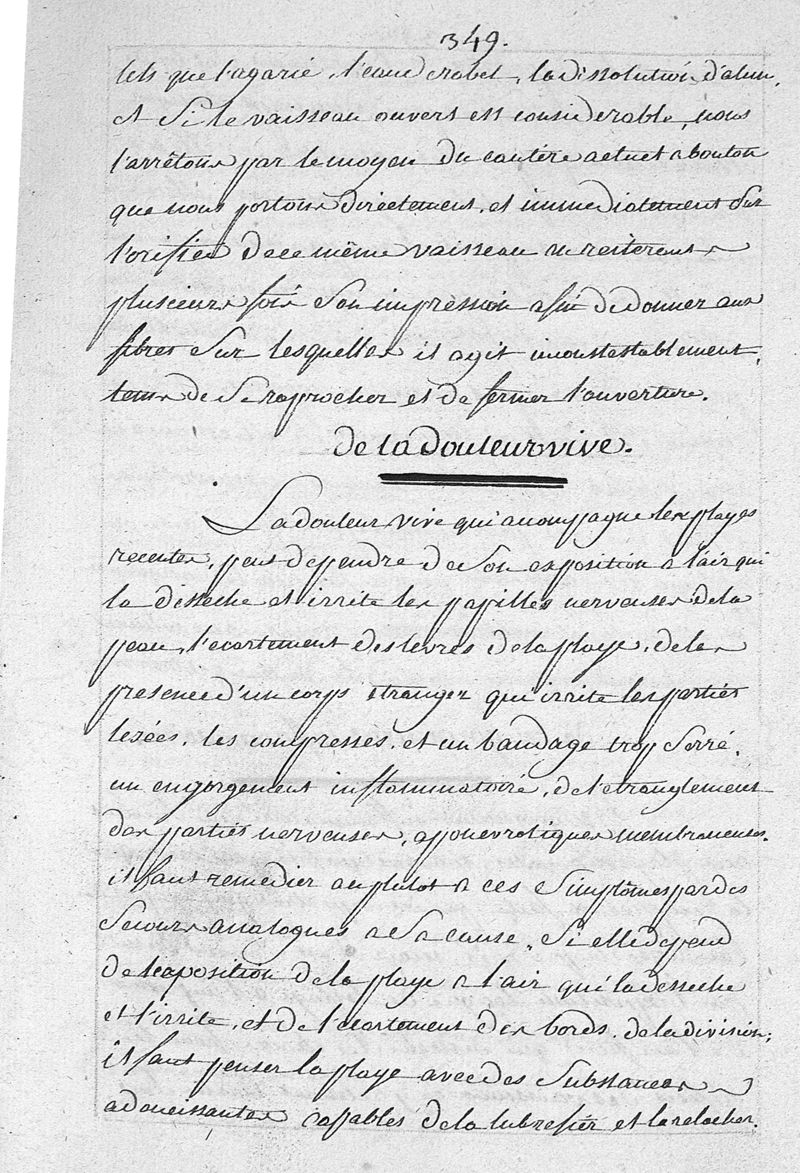 349.
tels que l'agaric, l'eau de rabel, la dissolution d'alun,
et si le vaisseau ouvert est considerable, nous
l'arrêtons par le moyen du cautère actuel a bouton
que nous portons directement, et immediatement sur
l'orifice de ce même vaisseau
plusieurs fois son impression afin de donner aux
fibres sur lesquelles il agit incontestablement,
tems de se raprocher et de fermer l'ouverture.
de la douleur vive.
La douleur vive qui accompagne les playes
recentes, peut dependre de son exposition a l'air qui
la desseche et irrite les papilles nerveuses de la
peau, l'ecartement des levres de la playe, de la
presence d'un corps etranger qui irrite les parties
lezées, les compresses, et un bandage trop serré,
un engorgement inflammatoire, de l'etranglement
des parties nerveuses, aponevrotiques membraneuses.
il faut remedier au plutot a ces simptômes par des
secours analogues a sa cause, si elle depend
de l'exposition de la playe a l'air qui la desseche
et l'irrite, et de l'ecartement des bords, de la division;
il faut penser la playe avec des substances
adoucissantes capables de la lubrefier et la relacher.